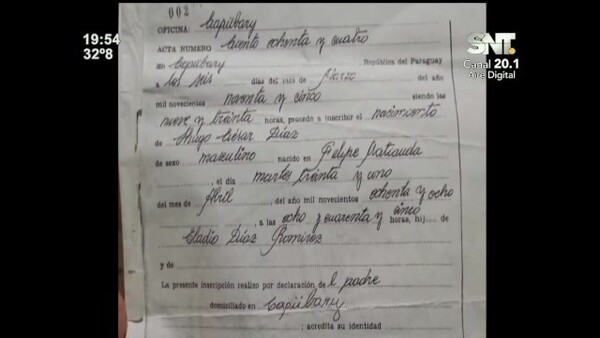 19:54
32º8
SNT
Canal 20.1
Aire Digital
002
OFICINA: Capiibary
ACTA NUMERO Ciento ochenta y cuatro
En Capiibary República del Paraguay
a los seis días del mes de Marzo del año
mil novecientos noventa y cinco siendo las
nueve y treinta horas, procedo a inscribir el nacimiento
de Hugo César Díaz
de sexo masculino nacido en Felipe Matiauda
, el día martes treinta y uno
del mes de Abril , del año mil novecientos ochenta y ocho
, a las ocho y cuarenta y cinco horas, hij de
Eladio Díaz Ramirez
y de
La presente inscripción realizo por declaración de l padre
domiciliado en Capiibary
; acredita su identidad